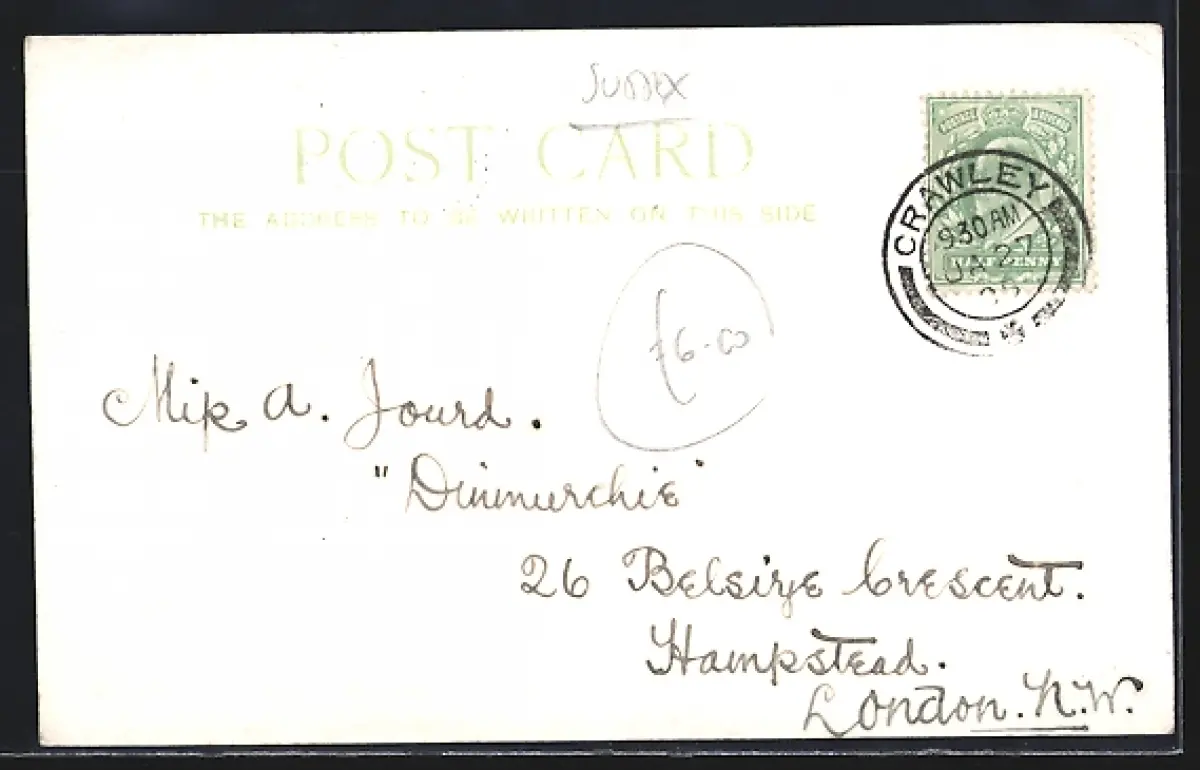 Sussex
POST CARD
THE ADDRESS TO BE WRITTEN ON THIS SIDE
CRAWLEY
9 30 AM
JA 27
HALFPENNY
£6-00
Miss A. Jourd.
"Dinmurchie"
26 Belsize Crescent.
Hampstead.
London. N.W.